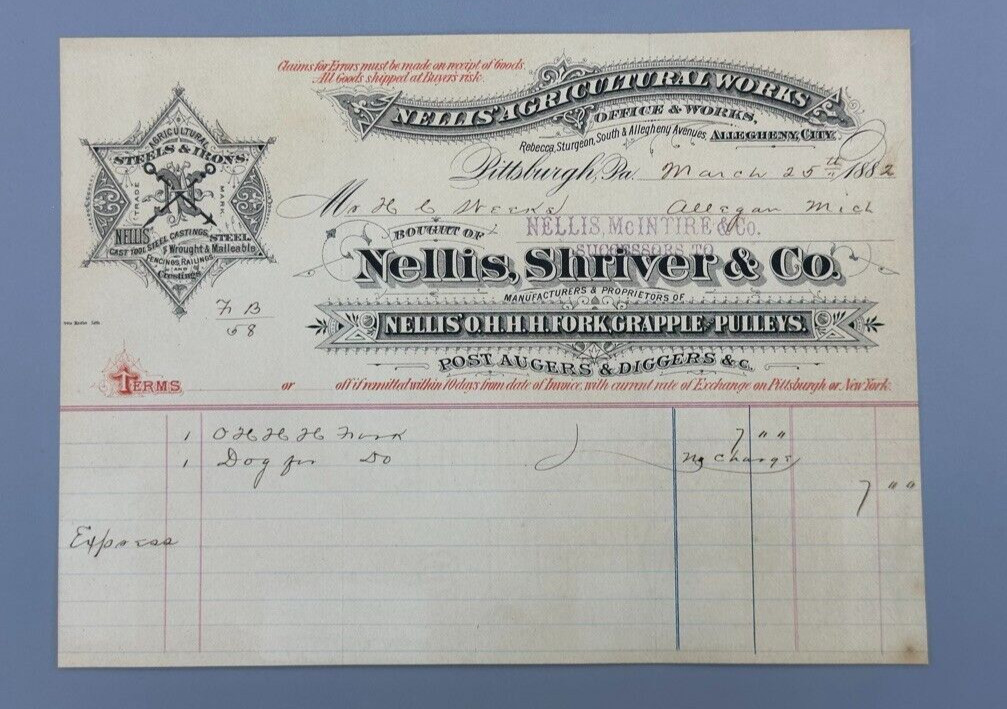 Claims for Errors must be made on receipt of Goods.
All Goods shipped at Buyers risk.
NELLIS' AGRICULTURAL WORKS
OFFICE & WORKS,
Rebecca, Sturgeon, South & Allegheny Avenues, ALLEGHENY, CITY.
AGRICULTURAL
STEELS & IRONS.
TRADE MARK
NELLIS' STEEL.
CAST TOOL STEEL CASTINGS,
& Wrought & Malleable
FENCINGS, RAILINGS
AND
Crestings
Pittsburgh, Pa. March 25th 1882
Mr H C Weeks Allegan Mich
BOUGHT OF
NELLIS, McINTIRE & Co.
SUCCESSORS TO
Nellis, Shriver & Co.
MANUFACTURERS & PROPRIETORS OF
NELLIS' O.H.H.H. FORK, GRAPPLE AND PULLEYS.
POST AUGERS & DIGGERS &C.
F B
68
TERMS or off if remitted within 10 days from date of Invoice, with current rate of Exchange on Pittsburgh or New York.
1 O H H H Fork 7 " "
1 Dog for Do No Charge
7 " "
Express